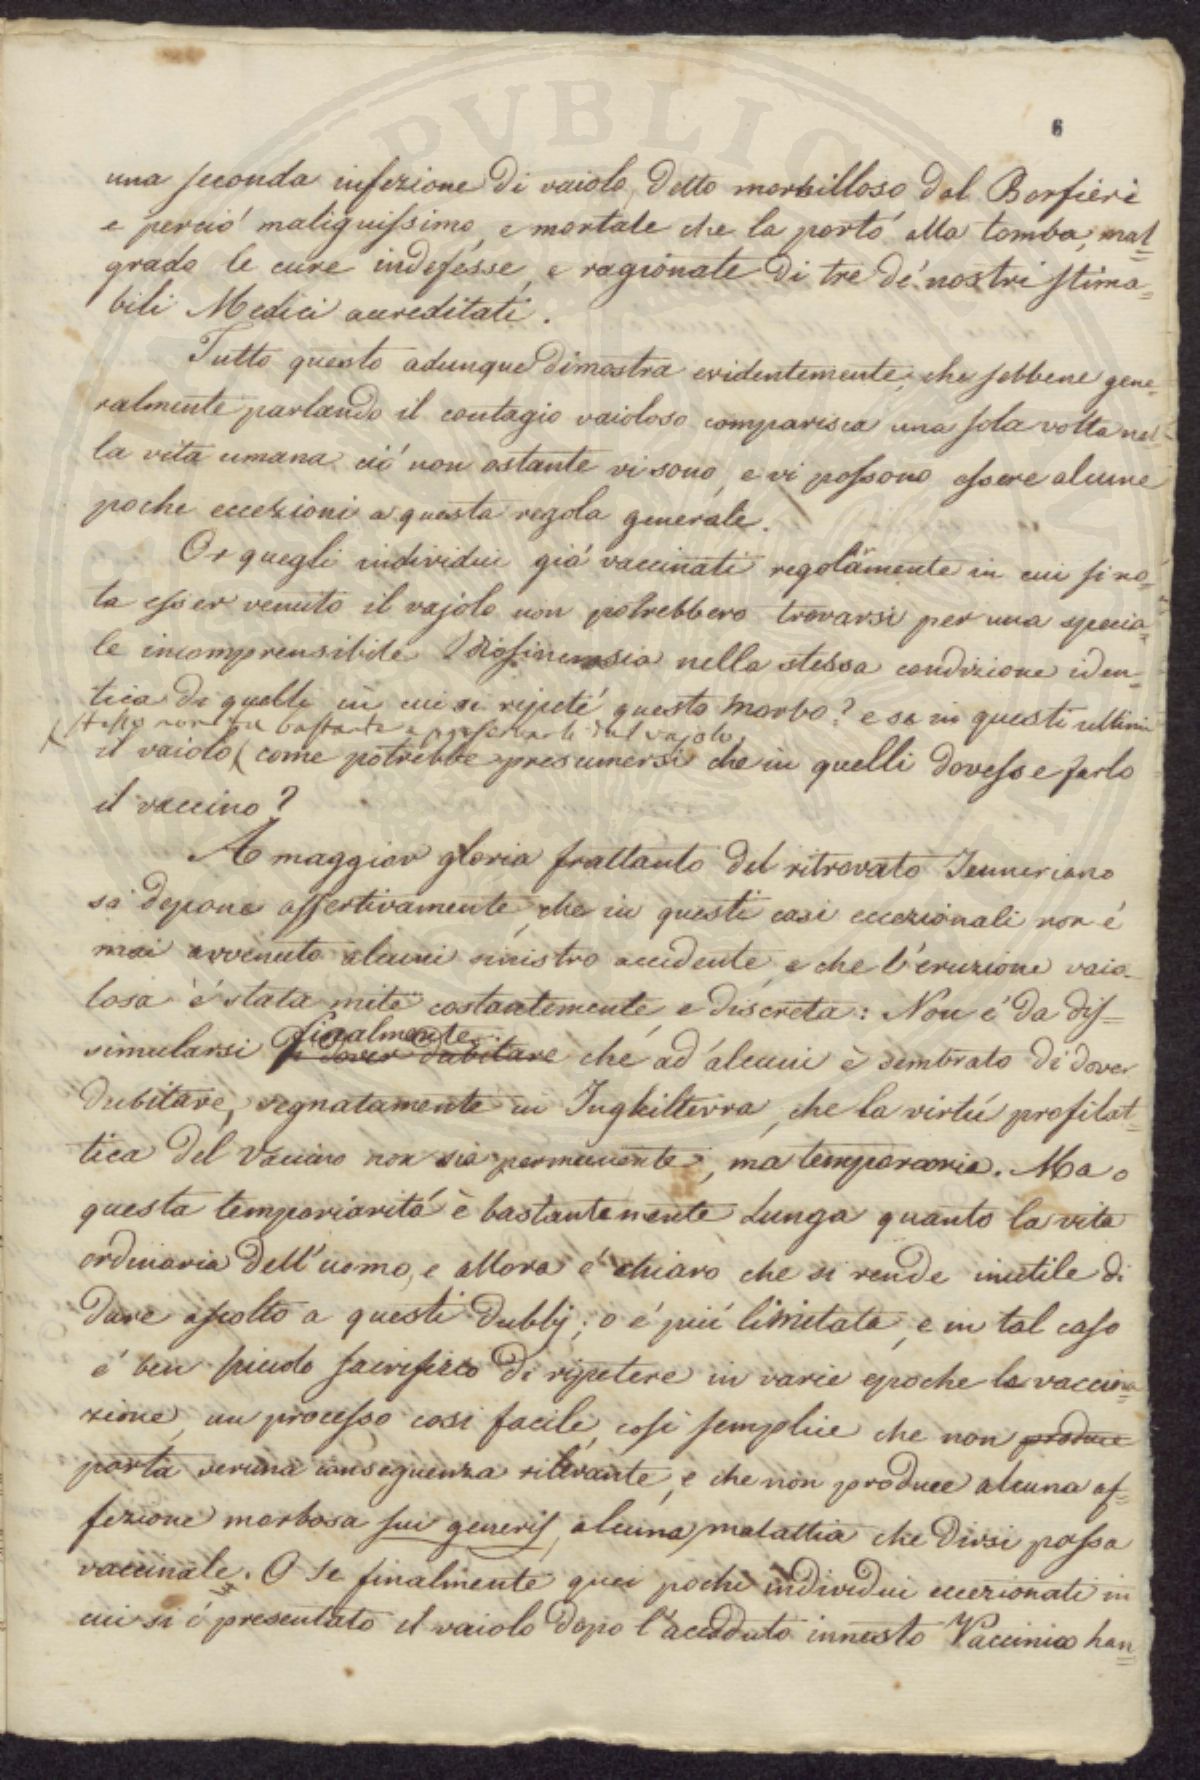 PUBLIC
6
una seconda infezione di vaiolo, detto morbilloso dal Borsieri
e perció malignissimo, e mortale che la portó alla tomba, mal=
grado le cure indefesse, e ragionate di tre de' nostri stima=
bili Medici accreditati.
Tutto questo adunque dimostra evidentemente, che sebbene gene=
ralmente parlando il contagio vaioloso comparisca una sola volta nel=
la vita umana, ció non ostante vi sono, e vi possono essere alcune
poche eccezioni a questa regola generale.
Or quegli individui giá vaccinati regolarmente in cui si no=
ta esser venuto il vajolo non potrebbero trovarsi per una specia=
le incomprensibile Idiosincrasia nella stessa condizione iden=
tica di quelli in cui si ripeté questo morbo? e se in questi ultimi
stesso non fu bastante a preservarli dal vajolo,
il vaiolo come potrebbe presumersi che in quelli dovesse farlo
il vaccino?
A maggior gloria frattanto del ritrovato Jenneriano
si depone assertivamente, che in questi casi eccezionali non é
mai avvenuto alcuni sinistro accidente, e che l'eruzione vaio=
losa é stata mite costantemente, e discreta: Non é da dis=
finalmente
simularsi di dover dubitare che ad alcuni è sembrato di dover
dubitare, segnatamente in Inghilterra, che la virtú profilat=
tica del Vaccino non sia permanente, ma temporaria. Ma o
questa temporiaritá è bastantemente lunga quanto la vita
ordinaria dell'uomo, e allora é chiaro che si rende inutile di
dare ascolto a questi dubbj; o é piú limitata, e in tal caso
é ben piccolo sacrifizio di ripetere in varie epoche la vaccina=
zione, un processo cosi facile, cosi semplice che non produce
porta veruna conseguenza rilevante, e che non produce alcuna af=
fezione morbosa sui generis, alcuna malattia che dirsi possa
vaccinale. O se finalmente quei pochi individui eccezionali in
cui si é presentato il vaiolo dopo l'accaduto innesto Vaccinico han=